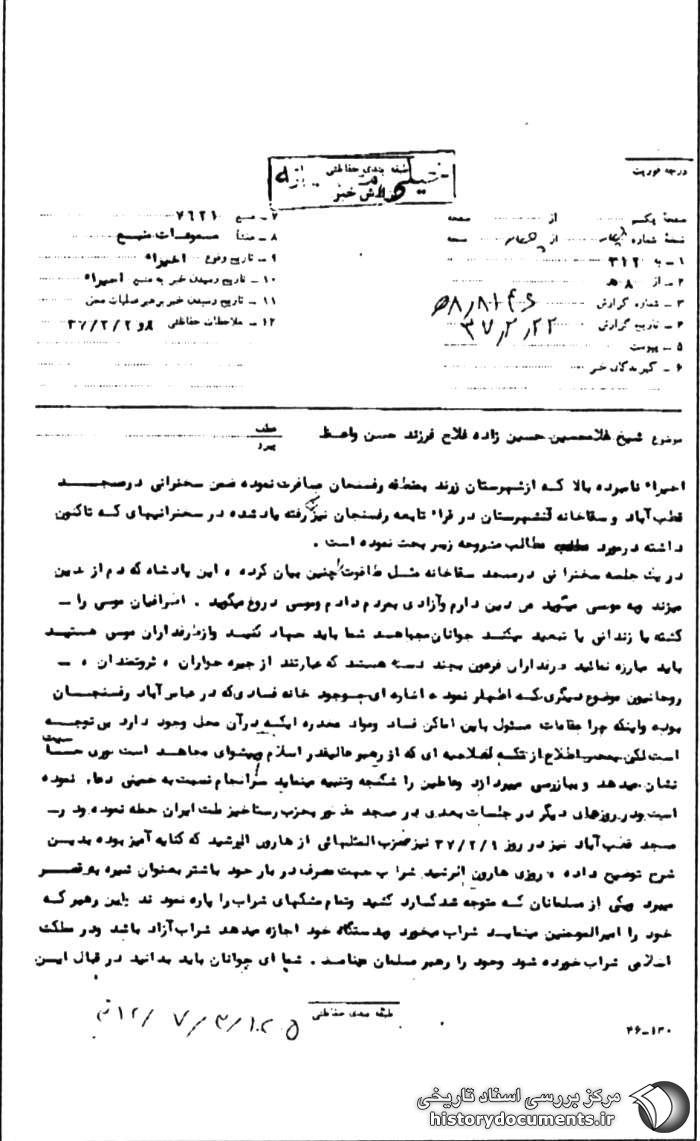 درجه فوریت
طبقه بندی حفاظتی
خیلی محرمانه
گزارش خبر
صفحه یکم از صفحه
نسخهٔ شماره از نسخه
۱ ــ به ۳۱۲
۲ ــ از ۸ ه
۳ ــ شماره گزارش
۴ ــ تاریخ گزارش ۳۷٫۲٫۲۲
۵ ــ پیوست
۶ ــ گیرندگان خبر
۷ ــ منبع ۷۶۲۱
۸ ــ منشأ مسموعات منبع
۹ ــ تاریخ وقوع اخیراً
۱۰ ــ تاریخ رسیدن خبر به منبع اخیراً
۱۱ ــ تاریخ رسیدن خبر برهبر عملیات
۱۲ ــ ملاحظات حفاظتی
موضوع شیخ غلامحسین حسین زاده فلاح فرزند حسن واعظ
عطف
پیرو
اخیراً نامبرده بالا که ازشهرستان زرند بمنطقه رفسنجان مسافرت نموده ضمن سخنرانی درمسجد
قطب آباد و سقاخانه آنشهرستان در قراء تابعه رفسنجان نیز رفته یادشده در سخنرانیهای که تاکنون
داشته درمورد مطالب مشروحه زیر بحث نموده است .
در یک جلسه سخنرانی درمسجد سقاخانه مثل طاغوت چنین بیان کرده ، این پادشاه که دم از دین
میزند به موسی میگوید من دین دارم وآزادی بمردم دادم وموسی دروغ میگوید . اطرافیان موسی را ــ
کشته یا زندانی یا تبعید میکند جوانان مجاهد شما باید جهاد کنید وازطرفداران موسی هستید
باید مبارزه نمائید طرفداران فرعون بچند دسته هستند که عبارتند از جیره خواران ، ثروتمندان ، ــ
روحانیون موضوع دیگری که اظهار نموده اشاره ای بوجود خانه فسادی که در عباس آباد رفسنجان
بوده واینکه چرا مقامات مسئول باین اماکن فساد ومواد مخدره اینکه درآن محل وجود دارد بی توجه
است لکن بمحض اطلاع از اعلامیه ای که از رهبر عالیقدر اسلام وپیشوای مجاهد است
نشان میدهد و ببازرسی میپردازد وعاظین را شکنجه وتنبیه مینماید سرانجام نسبت به خمینی دعاء نموده
است ودر روزهای دیگر در جلسات بعدی در مسجد بحزب رستاخیز ملت ایران حمله نموده ود ر ــ
مسجد قطب آباد نیز در روز ۳۷/۲/۹ نیز ضرب المثلهائی از هارون الرشید که کنایه آمیز بوده بدین
شرح توضیح داده ، روزی هارون الرشید شراب جهت مصرف در بار خود باشتر بعنوان شیره به قصر
میبرد یکی از مسلمانان که متوجه شد کارد کشید وتمام مشکهای شراب را پاره نمود این رهبر که
خود را امیرالمومنین مینامید شراب میخورد وبدستگاه خود اجازه میدهد شراب آزاد باشد ودر مملکت
اسلامی شراب خورده شود وخود را رهبر مسلمان مینامد . شما ای جوانان باید بدانید در قبال این
طبقه بندی حفاظتی
۴۶ــ۱۳۰
مرکز بررسی اسناد تاریخی
historydocuments.ir